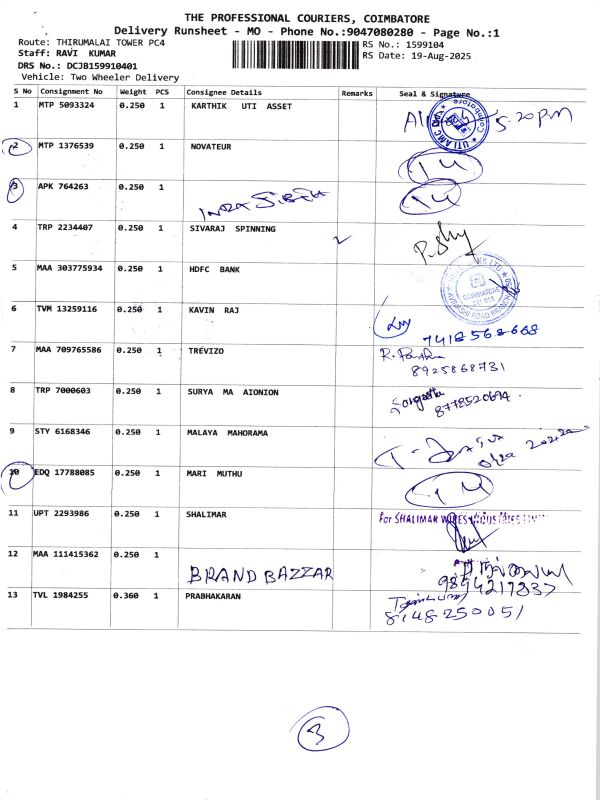 THE PROFESSIONAL COURIERS, COIMBATORE
Delivery Runsheet - MO - Phone No.:9047080280 - Page No.:1
Route: THIRUMALAI TOWER PC4
RS No.: 1599104
Staff: RAVI KUMAR
RS Date: 19-Aug-2025
DRS No.: DCJB159910401
Vehicle: Two Wheeler Delivery
S No Consignment No Weight PCS Consignee Details Remarks Seal & Signature
1 MTP 5093324 0.250 1 KARTHIK UTI ASSET 5.20 PM
UTI AMC Coimbatore
2 MTP 1376539 0.250 1 NOVATEUR
3 APK 764263 0.250 1
4 TRP 2234407 0.250 1 SIVARAJ SPINNING
5 MAA 303775934 0.250 1 HDFC BANK
COIMBATORE
6 TVM 13259116 0.250 1 KAVIN RAJ
7418568668
7 MAA 709765586 0.250 1 TREVIZO
8925868731
8 TRP 7000603 0.250 1 SURYA MA AIONION
9 STY 6168346 0.250 1 MALAYA MAHORAMA
10 EDQ 17788085 0.250 1 MARI MUTHU
11 UPT 2293986 0.250 1 SHALIMAR For SHALIMAR WIRES INDUSTRIES
12 MAA 111415362 0.250 1
BRAND BAZZAR
9894217337
13 TVL 1984255 0.360 1 PRABHAKARAN
8148250051
3